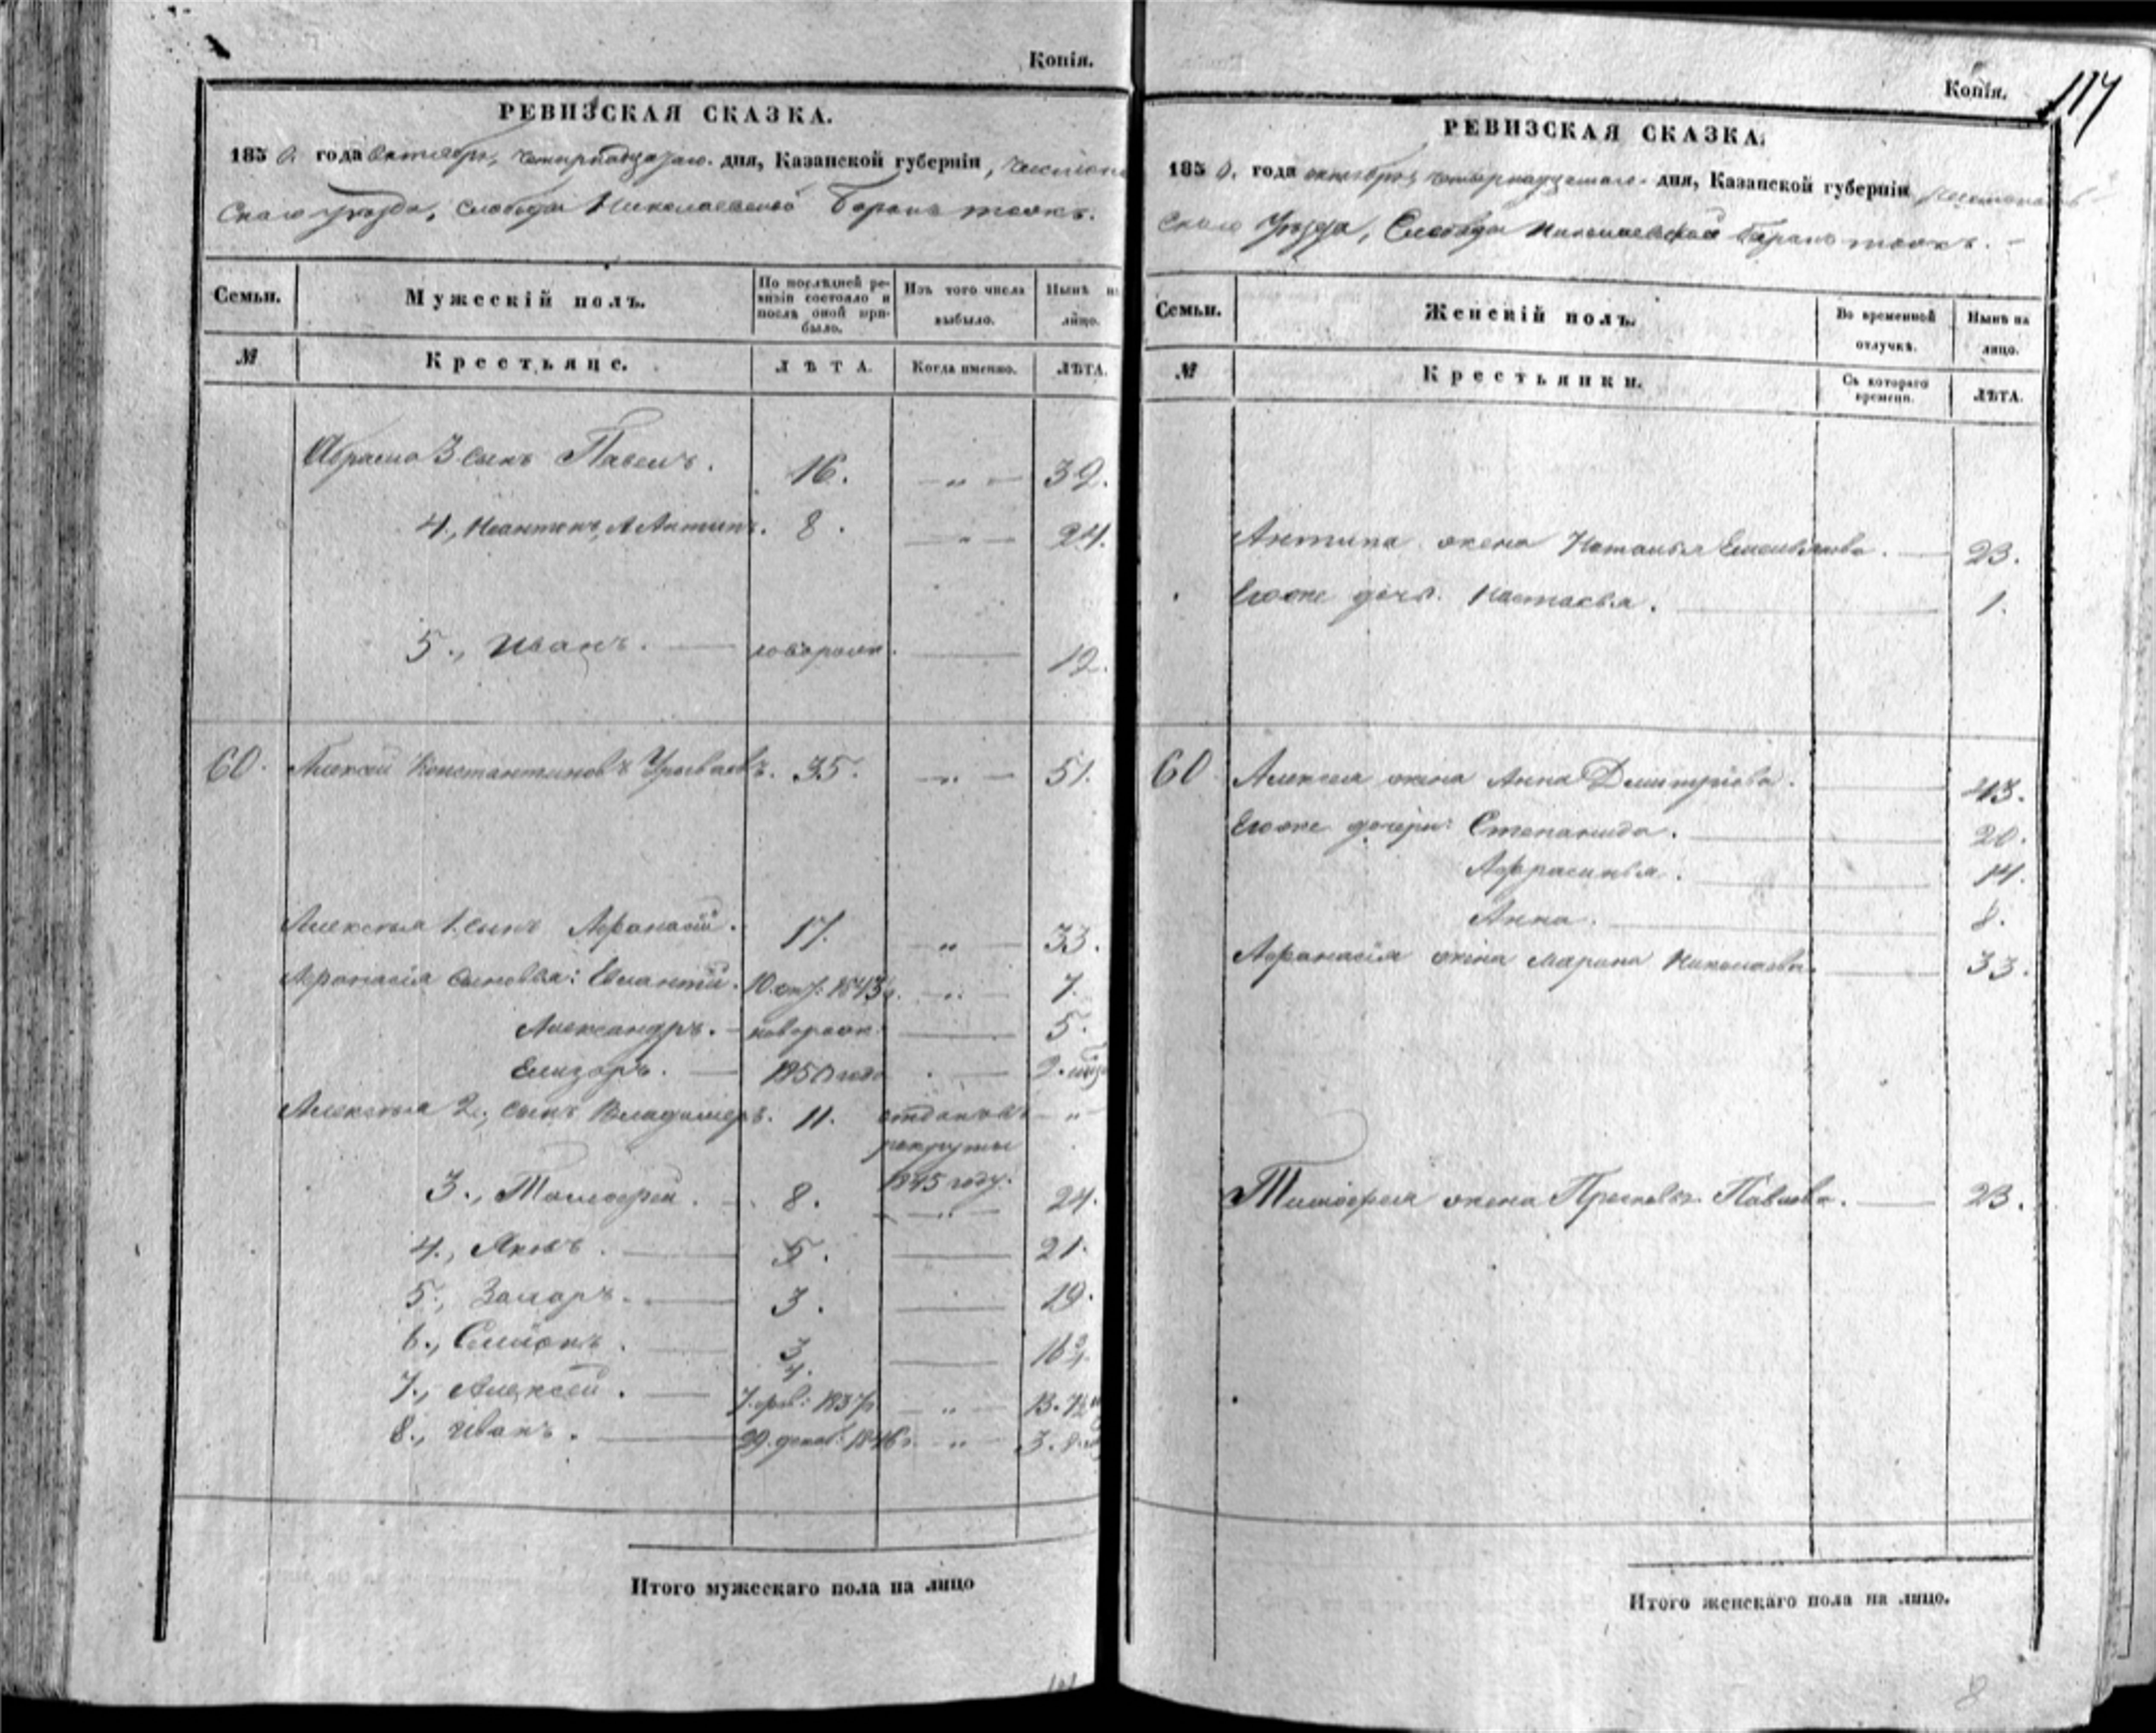 Копія.
РЕВИЗСКАЯ СКАЗКА.
1850. года октября, четырнадцатаго дня, Казанской губерніи,
скаго уѣзда, слободы Николаевской Баранъ тожъ.
Семьи.
Мужескій полъ.
По послѣдней ревизіи состояло и послѣ оной прибыло.
Изъ того числа выбыло.
Нынѣ на лицо.
№
Крестьяне.
ЛѢТА.
Когда именно.
ЛѢТА.
Абрама 3 сынъ Павелъ. 16. — " — 32.
4., Антипъ. 8. — " — 24.
5., Иванъ. — новорожд. — 12.
60. Алексей Константиновъ 35. — " — 51.
Алексея 1. сынъ Афанасій. 17. — " — 33.
Афанасія сыновья: 10. окт: 1843 г. — " — 7.
Александръ. — новорожд. — 5.
Елизаръ. — 1850 года — 2.
Алексея 2., сынъ Владимеръ. 11. отданъ въ — " —
рекруты
1845 году.
3., Тимофей. — 8. — " — 24.
4., Яковъ. — 5. — 21.
5., — 3. — 19.
6., Семіонъ. — 3/4. — 16 3/4.
7., Алексей. — 7. 1837 г. — " — 13. 7½
8., Иванъ. — 29. декаб: 1846 г. — " — 3.
Итого мужескаго пола на лицо
Копія.
117
РЕВИЗСКАЯ СКАЗКА.
1850. года октября, четырнадцатаго дня, Казанской губерніи
скаго уѣзда, Слободы Николаевской Баранъ тожъ. —
Семьи.
Женскій полъ.
Во временной отлучкѣ.
Нынѣ на лицо.
№
Крестьянки.
Съ котораго времени.
ЛѢТА.
Антипа жена Наталья Емельянова. — 23.
Егоже дочь. Настасья. — 1.
60 Алексея жена Анна Дмитріева. — 43.
Егоже дочери: Степанида. — 20.
Афрасинья. — 14.
Анна. — 8.
Афанасія жена Марина Николаева. — 33.
Тимофея жена Прасковья Павлова. — 23.
Итого женскаго пола на лицо.